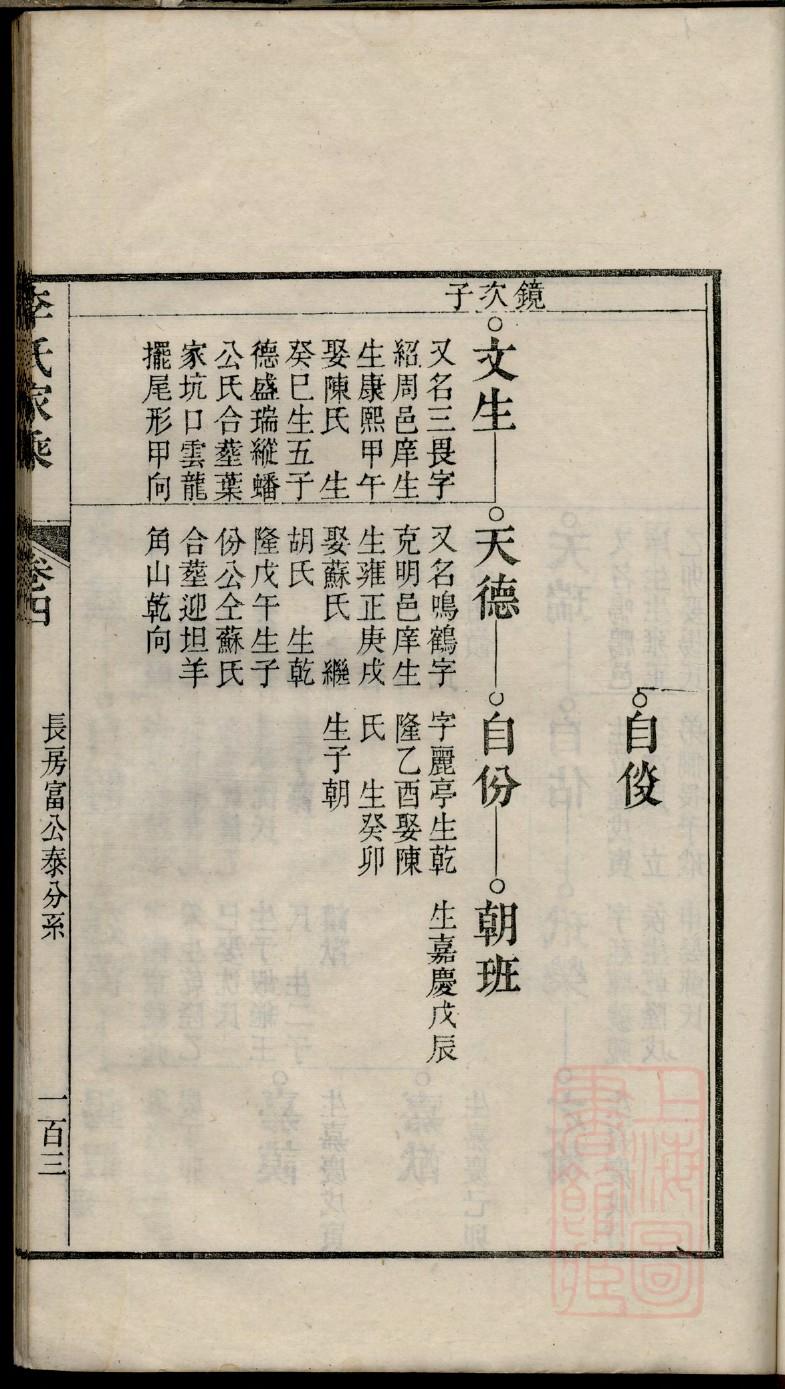 自俊
鏡次子
文生
又名三畏字
紹周邑庠生
生康熙甲午
娶陳氏　生
癸巳生五子
德盛瑞縱蟠
公氏合塟葉
家坑口雲龍
擺尾形甲向
天德
又名鳴鶴字
克明邑庠生
生雍正庚戌
娶蘇氏　繼
胡氏　生乾
隆戊午生子
份公仝蘇氏
合塟迎坦羊
角山乾向
自份
字麗亭生乾
隆乙酉娶陳
氏　生癸卯
生子朝
朝班
生嘉慶戊辰
李氏家乘
卷四
長房富公泰分系
一百三
上海圖書館藏